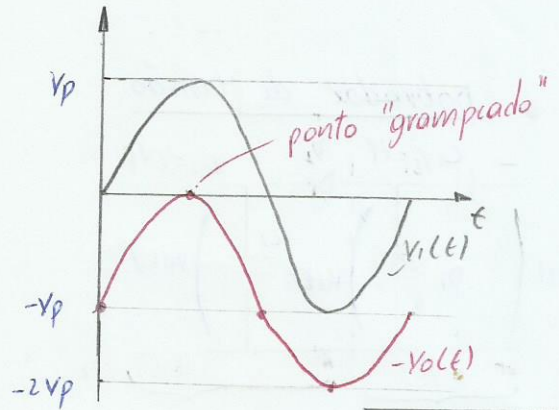 Vp
ponto "grampeado"
t
V1(t)
-Vp
-Vo(t)
-2Vp